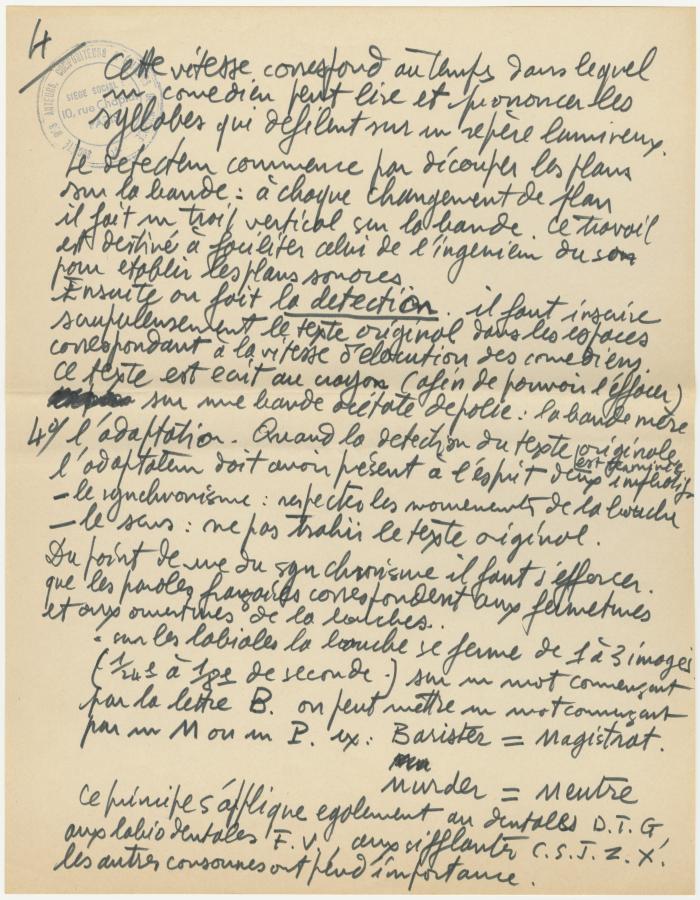 4
SIEGE SOCIAL
10, rue Chaptal
Cette vitesse correspond au temps dans lequel
un comedien peut lire et prononcer les
syllabes qui defilent sur un repère lumineux.
Le detecteur commence par découper les plans
sur la bande : à chaque changement de plan
il fait un trait vertical sur la bande. Ce travail
est destiné à faciliter celui de l'ingenieur du son
pour etablir les plans sonores
Ensuite on fait la detection. il faut inscrire
scrupuleusement le texte original dans les espaces
correspondant à la vitesse d'élocution des comediens.
Ce texte est ecrit au crayon (afin de pouvoir l'effacer)
sur une bande acétate depolie : la bande mère
4°/ l'adaptation. Quand la detection du texte originale
est terminée
l'adaptateur doit avoir présent à l'esprit deux
- le synchronisme : respecter les mouvements de la bouche
- le sens : ne pas trahir le texte original.
Du point de vue du synchronisme il faut s'efforcer.
que les paroles françaises correspondent aux fermetures
et aux ouvertures de la bouches..
- sur les labiales la bouche se ferme de 1 à 3 images
(1/24e à 1/8e de seconde.) sur un mot commençant
par la lettre B. on peut mettre un mot commençant
par un M ou un P. ex : Barister = Magistrat.
Murder = Meutre
Ce principe s'applique egalement au dentales D.T.G
aux labiodentales F.V., aux sifflantes C.S.J.Z.X.
les autres consonnes ont peu d'importance.